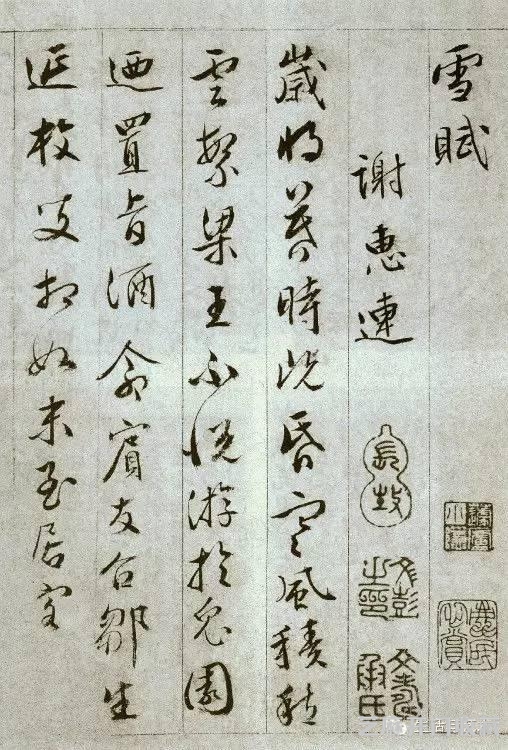 雪賦
謝惠連
歲將暮時既昏寒風積愁
雲繁梁王不悅游於兔園
迺置旨酒命賓友召鄒生
延枚叟相如末至居客
文彭之印
文壽承氏